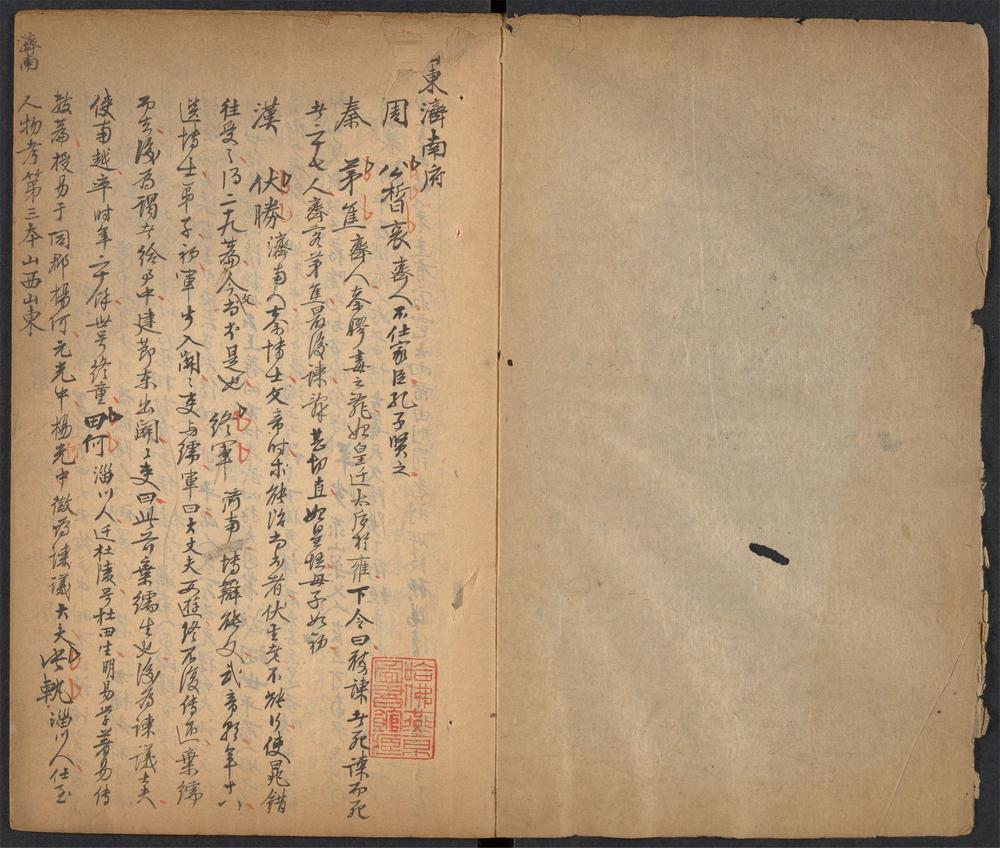 東濟南府
周 公晳哀 齊人不仕家臣孔子賢之
秦 茅焦 齊人秦嫪毐之亂始皇迁太后於雍下令曰敢諫者死諫而死
者二十七人齊客茅焦最後諫辞甚切直始皇怪母子如初
漢 伏勝 濟南人秦博士文帝时求能治尚书者伏生老不能行使晁錯
往受之得二十九篇今文尚书是也 終軍 济南人博辯能文武帝初年十八
選博士弟子初軍步入関関吏与繻軍曰大丈夫西遊終不復传还棄繻
而去後为謁者给事中建節东出関関吏曰此前棄繻生也後为諫議大夫
使南越卒时年二十餘世号終童 田何 淄川人迁杜陵号杜田生明易学著易传
数篇授易于同郡楊何元光中楊光中徵为諫議大夫 軌 淄川人仕至
人物考第三本山西山東
濟南
哈佛燕京
圖書館